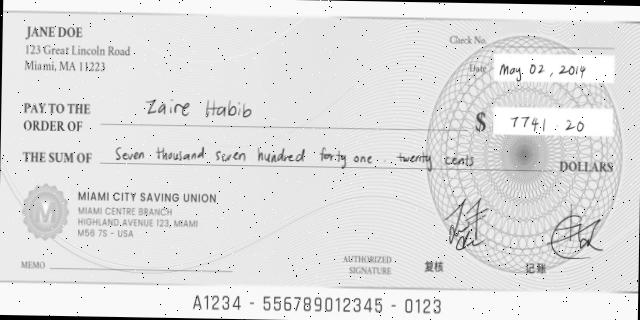 JANE DOE
123 Great Lincoln Road
Miami, MA 11223
Check No.
Date May 02, 2014
PAY TO THE
ORDER OF Zaire Habib
$ 7741.20
THE SUM OF Seven thousand seven hundred forty one twenty cents DOLLARS
MIAMI CITY SAVING UNION
MIAMI CENTRE BRANCH
HIGHLAND,AVENUE 123, MIAMI
M56 7S - USA
MEMO
AUTHORIZED
SIGNATURE
复核
记账
A1234 - 556789012345 - 0123